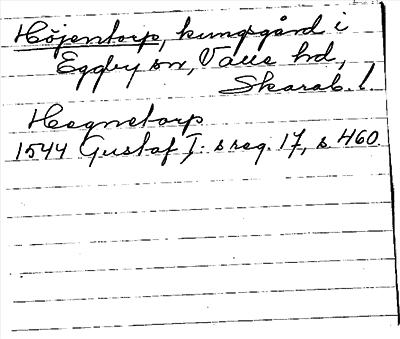 Höjentorp, kungsgård i
Eggby sn, Valle hd,
Skarab. l.
Hegnetorp
1544 Gustaf I:s reg. 17, s. 460